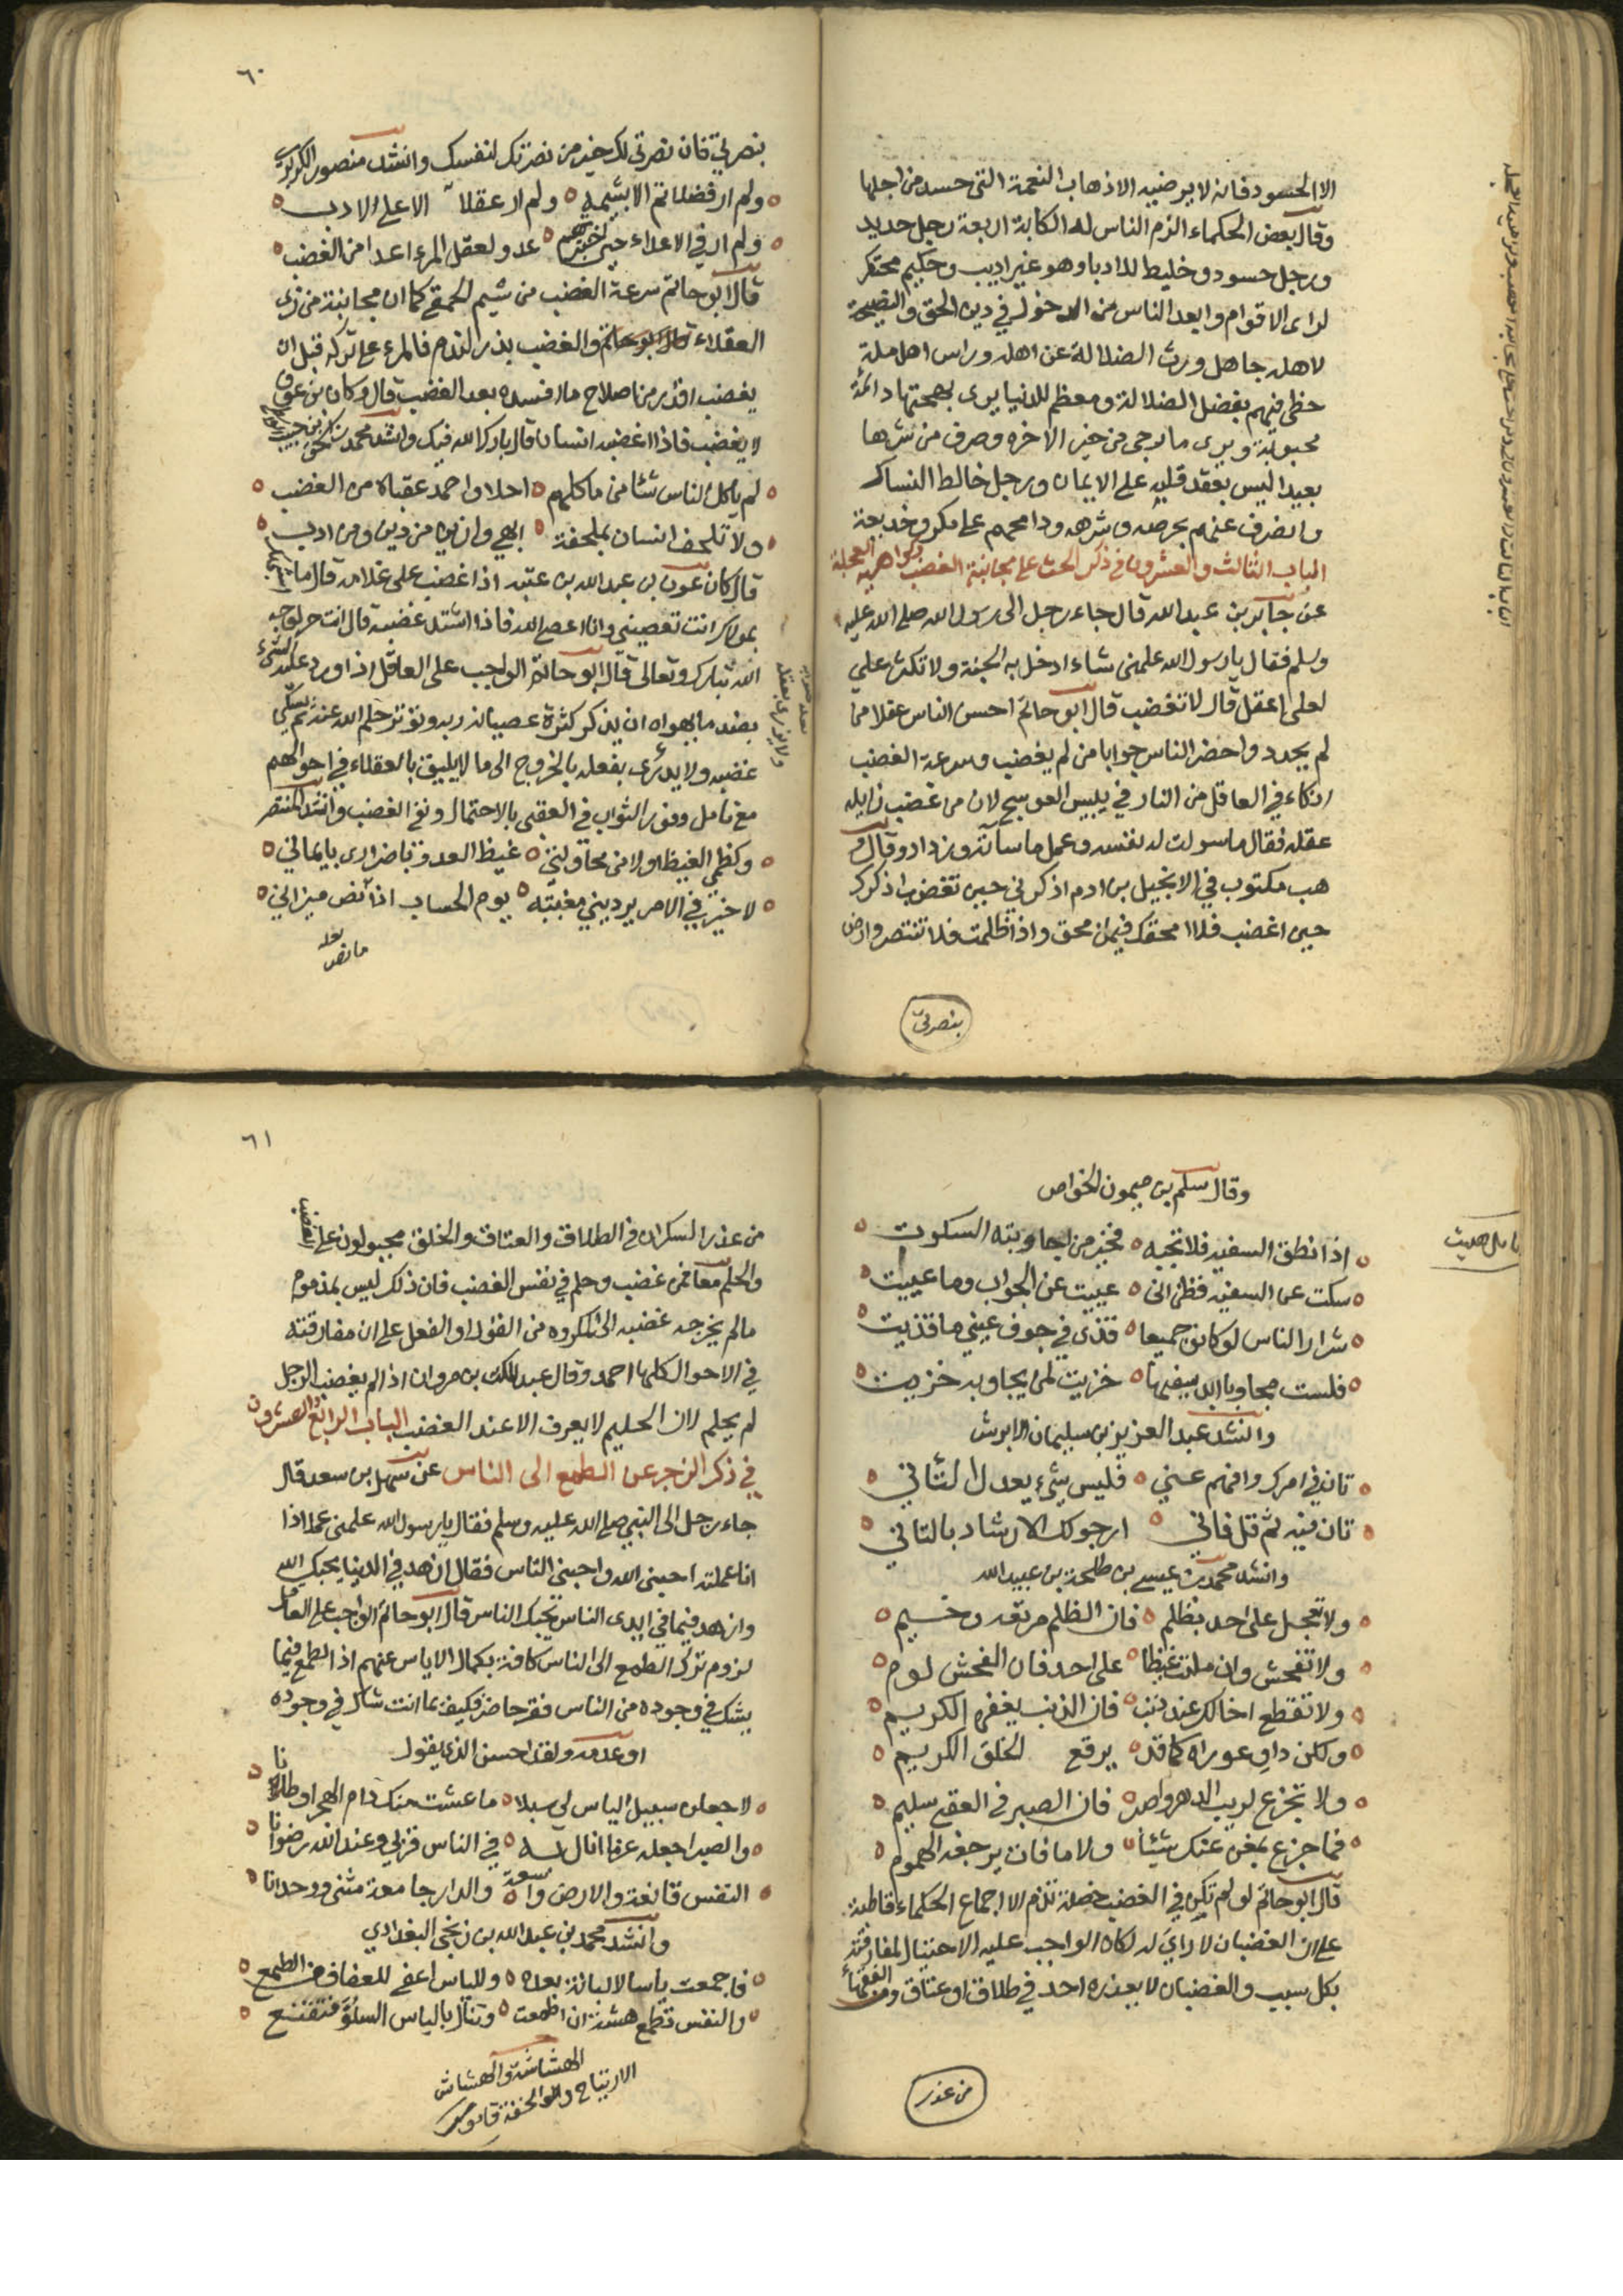 الا الحسود فانه لا يرضيه الا ذهاب النعمة التي حسد من اجلها
وقال بعض الحكماء الزم الناس للكابة اربعة رجل حديد
ورجل حسود وخليط للادبا وهو غير اديب وحكيم محتقر
لدى الاقوام وابعد الناس من الدخول في دين الحق والنصيحة
لاهله جاهل ورث الضلالة عن اهله وراس اهل ملة
حظى فيهم بفضل الضلالة ومعظم للدنيا يرى بهجتها دائمة
محبوبة ويرى ما يرجى من خير الاخره وصرف من شرها
بعيدا ليس يعقد قلبه على الايمان ورجل خالط النساك
وانصرف عنهم بحرصه وشرهه ودامجهم على مكر وخديعة
الباب الثالث والعشرون في ذكر الحث على مجانبة الغضب وكراهية العجلة
عن جابر بن عبد الله قال جاء رجل الى رسول الله صلى الله عليه
وسلم فقال يا رسول الله علمني شاء ادخل به الجنة ولا تكثر علي
لعلي اعقل قال لا تغضب قال ابو حاتم احسن الناس عقلا من
لم يحدد واحضر الناس جوابا من لم يغضب وسرعة الغضب
انكاء في العاقل من النار في يبيس العوسج لان من غضب زايله
عقله فقال ما سولت له نفسه وعمل ما سانه وزداد وقال و
هب مكتوب في الانجيل بن ادم اذكرني حين تغضب اذكرك
حين اغضب فلا امحقك فيمن امحق واذا ظلمت فلا تنتصر وارض
بنصرتي
٦٠
بنصرتي فان نصرتي لك خير من نصرتك لنفسك وانشد منصور الكريزي
ولم ار فضلا تم الا بشيمة ولم ار عقلا الا على الادب
ولم ار في الاعداء حين خبرتهم عدو لعقل المرء اعدا من الغضب
قال ابو حاتم سرعة الغضب من شيم الحمقى كما ان مجانبته من زي
العقلاء والغضب بذر الندم فالمرء على تركه قبل ان
يغضب اقدر من اصلاح ما افسده بعد الغضب قال وكان بن عون
لا يغضب فاذا اغضبه انسان قال بارك الله فيك وانشد محمد بن
لم ياكل الناس شئا من ماكلهم احلا واحمد عقباه من الغضب
ولا تلحف انسان بملحفة ابهي وازين من دين ومن ادب
قال كان عون بن عبد الله بن عتبه اذا غضب على غلامه قال ما اشبهك
بمولاك انت تعصيني وانا اعصي الله فاذا اشتد غضبه قال انت حر لوجه
الله تبارك وتعالى قال ابو حاتم الواجب على العاقل اذا ورد عليه الشيء
بضد ما يهواه ان يذكر كثرة عصيانه ربه وتواتر حلم الله عنه ثم يسكن
غضبه ولا يزري بفعله بالخروج الى ما لا يليق بالعقلاء في احوالهم
مع تامل وفور الثواب في العقبى بالاحتمال ونفي الغضب وانشد المنتصر
وكظمي الغيظ اولا من محاولتي غيظ العدو باضراري بايماني
لا خير في الامر يرديني مغبته يوم الحساب اذا نص ميزاني
وقال سلم بن ميمون الخواص
اذا نطق السفيه فلا تجبه فخير من اجابته السكوت
سكت عن السفيه فظن اني عييت عن الجواب وما عييت
شرار الناس لو كانو جميعا قذى في جوف عيني ما قذيت
فلست مجاوبا ابدا سفيها خزيت لمن يجاوبه خزيت
وانشد عبد العزيز بن سليمان الابرش
تان في امرك وافهم عني فليس شيء يعدل التاني
تان فيه ثم قل فاني ارجو لك الارشاد بالتاني
وانشد محمد بن عيسى بن طلحة بن عبيد الله
ولا تعجل على احد بظلم فان الظلم مرتعه وخيم
ولا تفحش وان ملئت غيظا على احد فان الفحش لوم
ولا تقطع اخا لك عند ذنب فان الذنب يغفره الكريم
ولكن داوِ عوراه كما قد يرقع الخلق الكريم
ولا تجزع لريب الدهر واصبر فان الصبر في العقبى سليم
فما جزع بمغن عنك شيئا ولا ما فات يرجعه الهموم
قال ابو حاتم لو لم تكن في الغضب خصلة تذم الا اجماع الحكماء قاطبة
على ان الغضبان لا راي له لكان الواجب عليه الاحتيال لمفارقته
بكل سبب والغضبان لا يعذره احد في طلاق او عتاق ومن الفقهاء
من عذر
٦١
من عذر السكران في الطلاق والعتاق والخلق مجبولون على الغضب
والحلم معا فمن غضب وحلم في نفس الغضب فان ذلك ليس بمذموم
مالم يخرجه غضبه الى المكروه من القول او الفعل على ان مفارقته
في الاحوال كلها احمد وقال عبد الملك بن مروان اذا لم يغضب الرجل
لم يحلم لان الحليم لا يعرف الا عند الغضب الباب الرابع والعشرون
في ذكر الزجر عن الطمع الى الناس عن سهل بن سعد قال
جاء رجل الى النبي صلى الله عليه وسلم فقال يا رسول الله علمني عملا اذا
انا عملته احبني الله واحبني الناس فقال ازهد في الدنيا يحبك الله
وازهد فيما في ايدى الناس يحبك الناس قال ابو حاتم الواجب على العاقل
لزوم ترك الطمع الى الناس كافة بكمال الاياس عنهم اذ الطمع فيما
يشك في وجوده من الناس فقر حاضر فكيف بما انت شاك في وجوده
او عدمه ولقد احسن الذي يقول
لاجعلن سبيل الياس لي سبلا ما عشت منك دام الهجر او طالا
والصبر اجعله عرفا انال له في الناس قربى وعند الله رضوانا
النفس قانعة والارض واسعة والدار جامعة مثنى ووحدانا
وانشد محمد بن عبد الله بن زنجي البغدادي
فاجمعت ياسا لا لبانة بعده وللياس اعفى للعفاف من الطمع
والنفس تطمع هشة ان اطمعت وتنال بالياس السلوَّ فتقنع
الهشاشة والهشاش
الارتياح والخفة قاموس